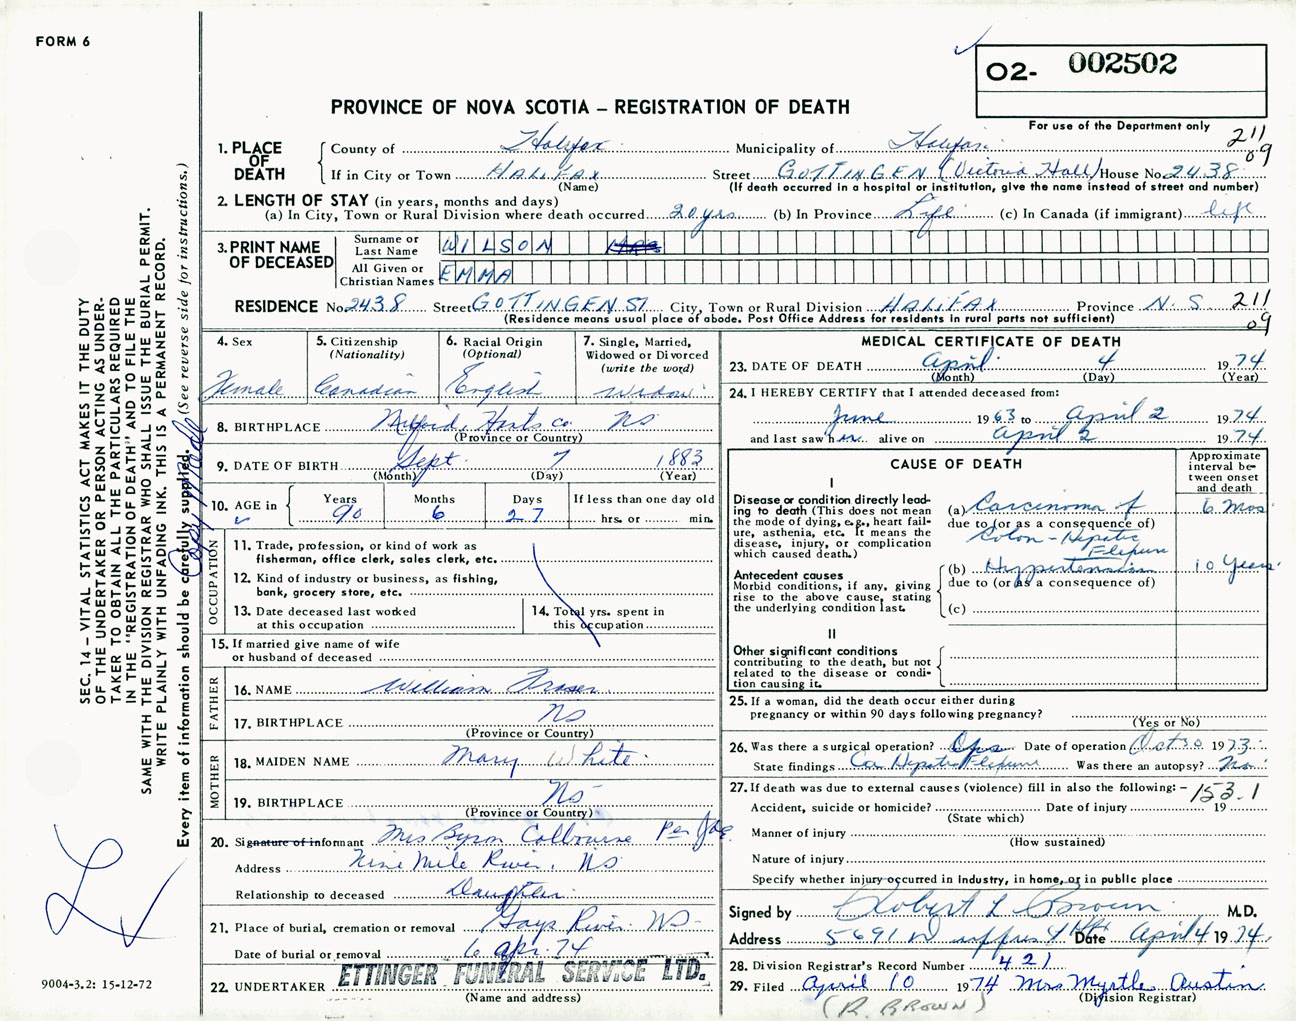 FORM 6
O2- 002502
PROVINCE OF NOVA SCOTIA – REGISTRATION OF DEATH
For use of the Department only
211
09
1. PLACE OF DEATH
County of Halifax Municipality of Halifax
If in City or Town HALIFAX Street GOTTINGEN (Victoria Hall) House No. 2438
(Name) (If death occurred in a hospital or institution, give the name instead of street and number)
2. LENGTH OF STAY (in years, months and days)
(a) In City, Town or Rural Division where death occurred 20 yrs. (b) In Province Life (c) In Canada (if immigrant) life
3. PRINT NAME OF DECEASED
Surname or Last Name WILSON
All Given or Christian Names EMMA
RESIDENCE No. 2438 Street GOTTINGEN ST City, Town or Rural Division HALIFAX Province N.S. 211
(Residence means usual place of abode. Post Office Address for residents in rural parts not sufficient) 09
4. Sex Female
5. Citizenship (Nationality) Canadian
6. Racial Origin (Optional) English
7. Single, Married, Widowed or Divorced (write the word) Widow
8. BIRTHPLACE Milford, Hants Co NS
(Province or Country)
9. DATE OF BIRTH Sept. 7 1883
(Month) (Day) (Year)
10. AGE in Years 90 Months 6 Days 27 If less than one day old
hrs. or min.
OCCUPATION
11. Trade, profession, or kind of work as fisherman, office clerk, sales clerk, etc.
12. Kind of industry or business, as fishing, bank, grocery store, etc.
13. Date deceased last worked at this occupation
14. Total yrs. spent in this occupation
15. If married give name of wife or husband of deceased
FATHER
16. NAME William Fraser
17. BIRTHPLACE NS
(Province or Country)
MOTHER
18. MAIDEN NAME Mary White
19. BIRTHPLACE NS
(Province or Country)
20. Signature of informant Mrs Byron Colbourne Per
Address Nine Mile River, NS
Relationship to deceased Daughter
21. Place of burial, cremation or removal Gays River NS
Date of burial or removal 6 Apr. 74
22. UNDERTAKER ETTINGER FUNERAL SERVICE LTD.
(Name and address)
MEDICAL CERTIFICATE OF DEATH
23. DATE OF DEATH April 4 1974
(Month) (Day) (Year)
24. I HEREBY CERTIFY that I attended deceased from:
June 1963 to April 2 1974
and last saw her alive on April 2 1974
CAUSE OF DEATH
Approximate interval between onset and death
I
Disease or condition directly leading to death (This does not mean the mode of dying, e.g., heart failure, asthenia, etc. It means the disease, injury, or complication which caused death.)
(a) Carcinoma of 6 mos
due to (or as a consequence of)
Colon - Hepatic Flexure
Antecedent causes
Morbid conditions, if any, giving rise to the above cause, stating the underlying condition last.
(b) Hypertension 10 Years
due to (or as a consequence of)
(c)
II
Other significant conditions
contributing to the death, but not related to the disease or condition causing it.
25. If a woman, did the death occur either during pregnancy or within 90 days following pregnancy?
(Yes or No)
26. Was there a surgical operation? Date of operation Oct 30 1973
State findings Ca Hepatic Flexure Was there an autopsy? No
27. If death was due to external causes (violence) fill in also the following: – 153.1
Accident, suicide or homicide? Date of injury 19
(State which)
Manner of injury
(How sustained)
Nature of injury
Specify whether injury occurred in industry, in home, or in public place
Signed by Robert L Brown M.D.
Address 5691 Date April 4 1974
28. Division Registrar's Record Number 421
29. Filed April 10 1974 Mrs Myrtle Austin
(Division Registrar)
(R. BROWN)
SEC. 14 – VITAL STATISTICS ACT MAKES IT THE DUTY
OF THE UNDERTAKER OR PERSON ACTING AS UNDER-
TAKER TO OBTAIN ALL THE PARTICULARS REQUIRED
IN THE "REGISTRATION OF DEATH" AND TO FILE THE
SAME WITH THE DIVISION REGISTRAR WHO SHALL ISSUE THE BURIAL PERMIT.
WRITE PLAINLY WITH UNFADING INK. THIS IS A PERMANENT RECORD.
Every item of information should be carefully supplied. (See reverse side for instructions.)
9004-3.2: 15-12-72